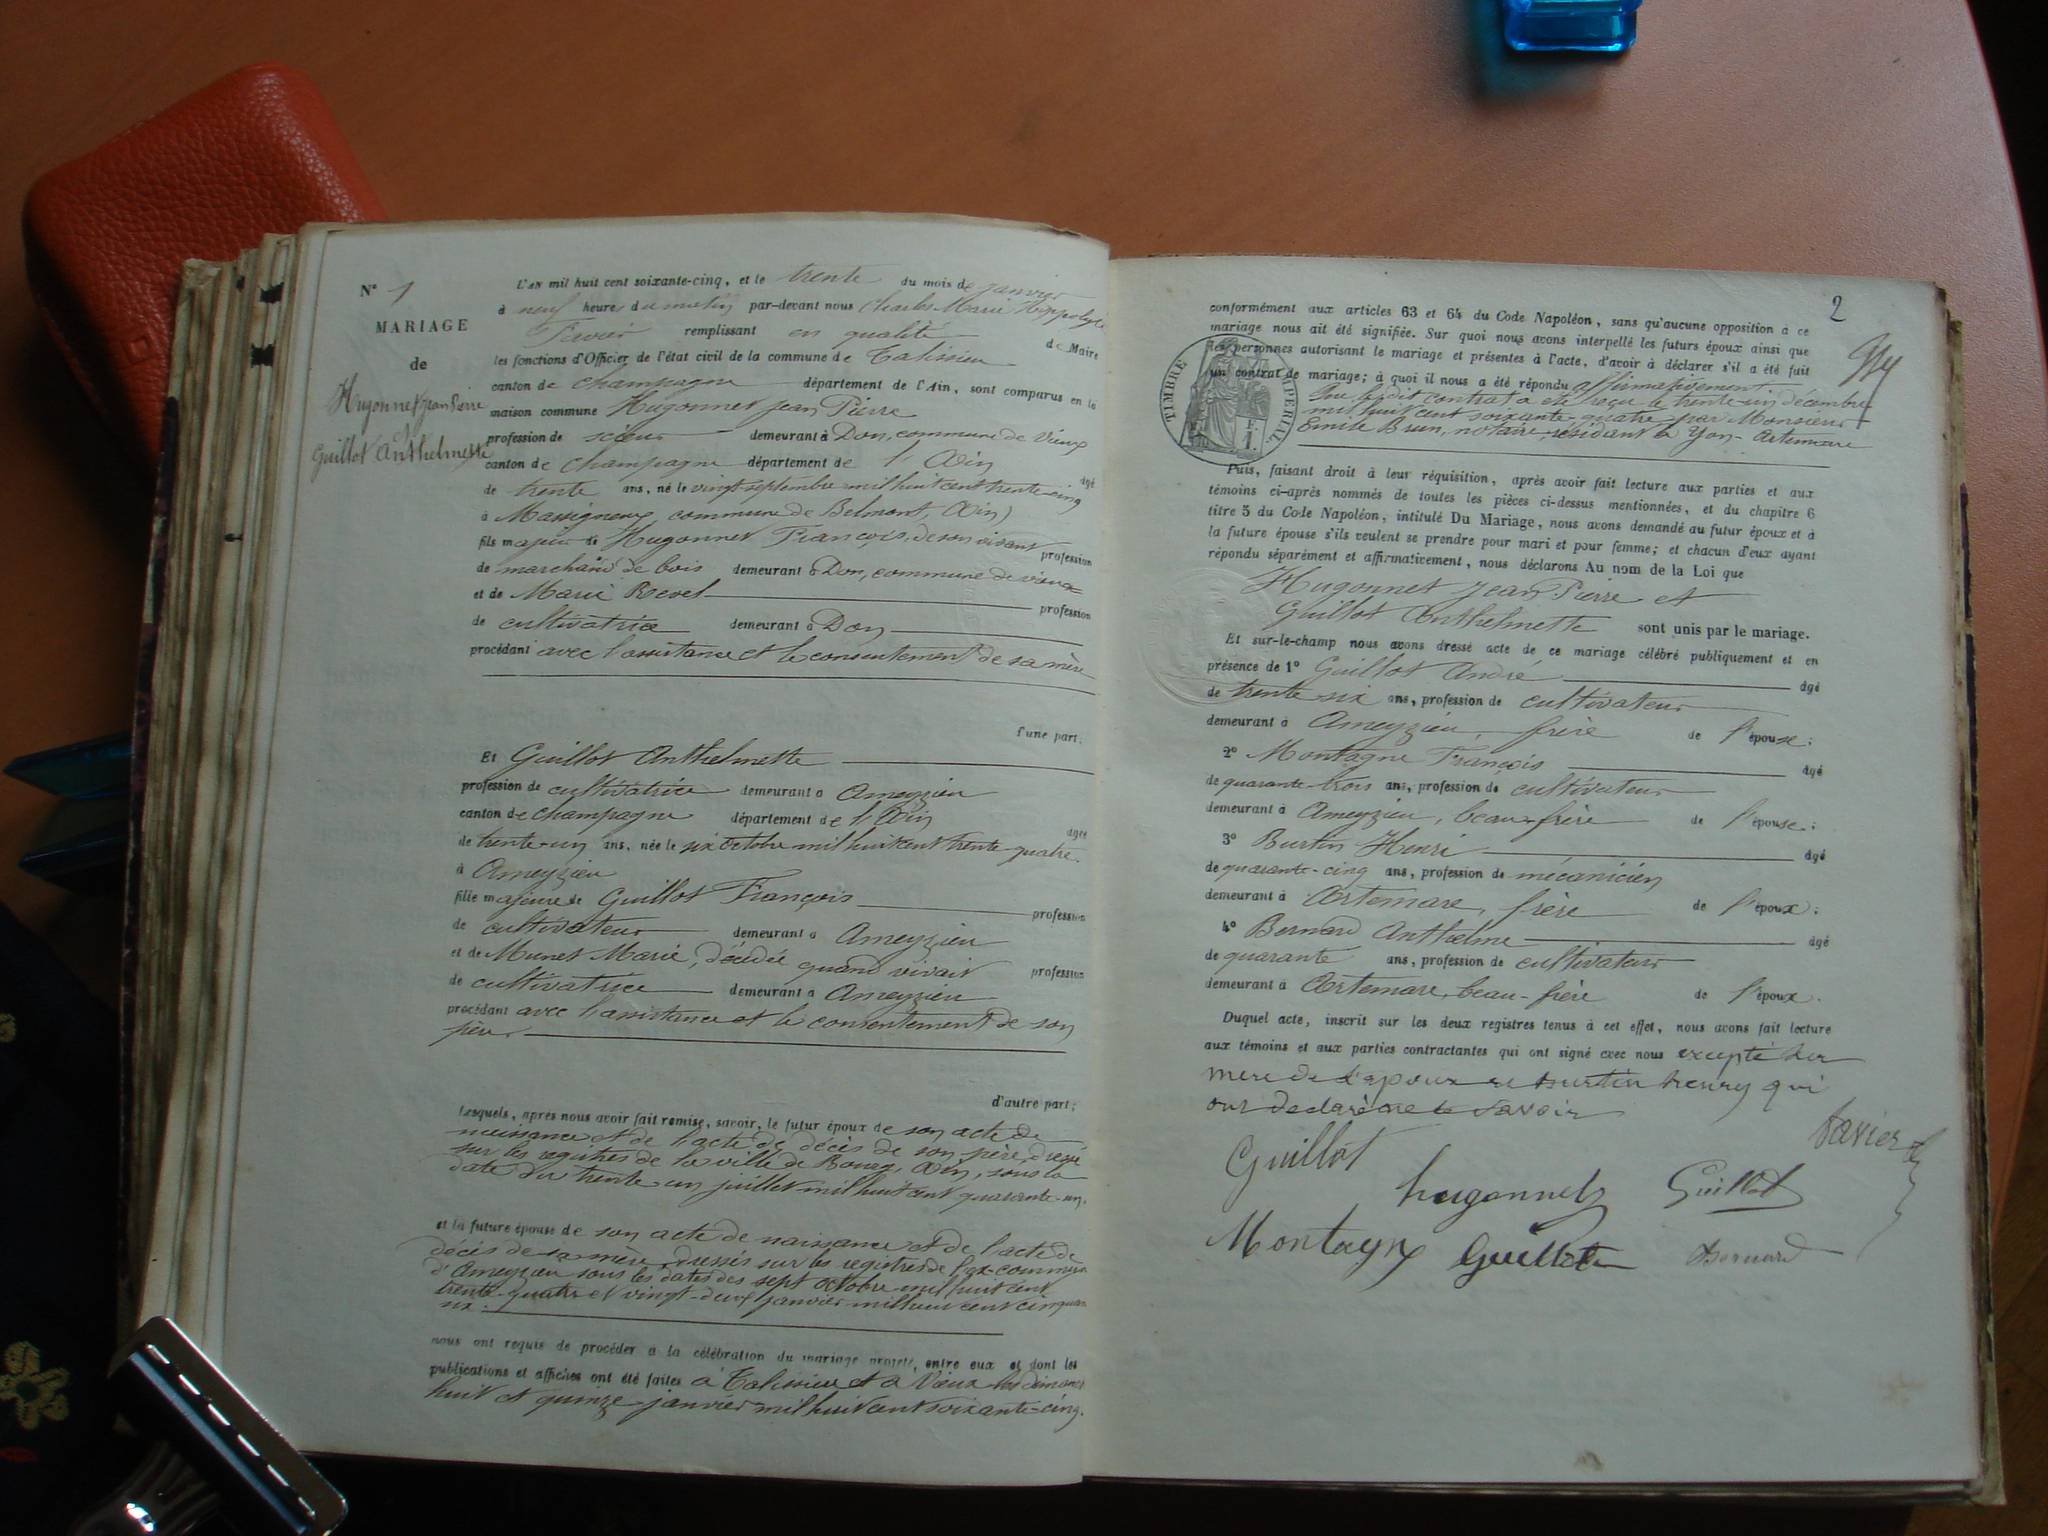 N° 1
MARIAGE
de
Hugonnet Jean Pierre
et
Guillot Anthelmette
L'AN mil huit cent soixante-cinq, et le trente du mois de janvier
à neuf heures du matin par-devant nous Charles Marie Hippolyte
Favier remplissant en qualité de Maire
les fonctions d'Officier de l'état civil de la commune de Talissieu
canton de Champagne département de l'Ain, sont comparus en la
maison commune Hugonnet Jean Pierre
profession de scieur demeurant à Don, commune de Vieux
canton de Champagne département de l'Ain âgé
de trente ans, né le vingt septembre mil huit cent trente-cinq
à Massigneux commune de Belmont, (Ain)
fils majeur de Hugonnet François, de son vivant profession
de marchand de bois demeurant à Don, commune de vieux
et de Marie Revel profession
de cultivatrice demeurant à Don
procédant avec l'assistance et le consentement de sa mère
d'une part;
Et Guillot Anthelmette
profession de cultivatrice demeurant à Ameyzieu
canton de Champagne département de l'Ain âgée
de trente-un ans, née le six octobre mil huit cent trente-quatre
à Ameyzieu
fille majeure de Guillot François profession
de cultivateur demeurant à Ameyzieu
et de Munet Marie, décédée quand vivait profession
de cultivatrice demeurant à Ameyzieu
procédant avec l'assistance et le consentement de son
père
d'autre part;
Lesquels, après nous avoir fait remise, savoir, le futur époux de son acte de
naissance et de l'acte de décès de son père, dressé
sur les registres de la ville de Bourg, Ain, sous la
date du trente un juillet mil huit cent quarante-un,
et la future épouse de son acte de naissance et de l'acte de
décès de sa mère, dressés sur les registres de l'ex-commune
d'Ameyzieu sous les dates des sept octobre mil huit cent
trente-quatre et vingt-deux janvier mil huit cent cinquante
six.
nous ont requis de procéder à la célébration du mariage projeté, entre eux et dont les
publications et affiches ont été faites à Talissieu et à Vieux les dimanches
huit et quinze janvier mil huit cent soixante-cinq.
2
conformément aux articles 63 et 64 du Code Napoléon, sans qu'aucune opposition à ce
mariage nous ait été signifiée. Sur quoi nous avons interpellé les futurs époux ainsi que
les personnes autorisant le mariage et présentes à l'acte, d'avoir à déclarer s'il a été fait
un contrat de mariage; à quoi il nous a été répondu affirmativement
Que le dit contrat a été reçu le trente-un décembre
mil huit cent soixante-quatre par Monsieur
Emile Brun, notaire, résidant à Yon-Artemare
TIMBRE IMPERIAL
F. 1.
Puis, faisant droit à leur réquisition, après avoir fait lecture aux parties et aux
témoins ci-après nommés de toutes les pièces ci-dessus mentionnées, et du chapitre 6
titre 5 du Code Napoléon, intitulé Du Mariage, nous avons demandé au futur époux et à
la future épouse s'ils veulent se prendre pour mari et pour femme; et chacun d'eux ayant
répondu séparément et affirmativement, nous déclarons Au nom de la Loi que
Hugonnet Jean Pierre et
Guillot Anthelmette sont unis par le mariage.
Et sur-le-champ nous avons dressé acte de ce mariage célébré publiquement et en
présence de 1° Guillot André âgé
de trente six ans, profession de cultivateur
demeurant à Ameyzieu, frère de l'épouse;
2° Montagne François âgé
de quarante-trois ans, profession de cultivateur
demeurant à Ameyzieu, beau-frère de l'épouse;
3° Burtin Henri âgé
de quarante-cinq ans, profession de mécanicien
demeurant à Artemare, frère de l'époux;
4° Bernard Anthelme âgé
de quarante ans, profession de cultivateur
demeurant à Artemare, beau-frère de l'époux.
Duquel acte, inscrit sur les deux registres tenus à cet effet, nous avons fait lecture
aux témoins et aux parties contractantes qui ont signé avec nous excepté
mere de l'epoux et burtin henry qui
ont declaré ne le savoir
favier
Guillot
hugonnet Guillot
Montagne Guillot Bernard